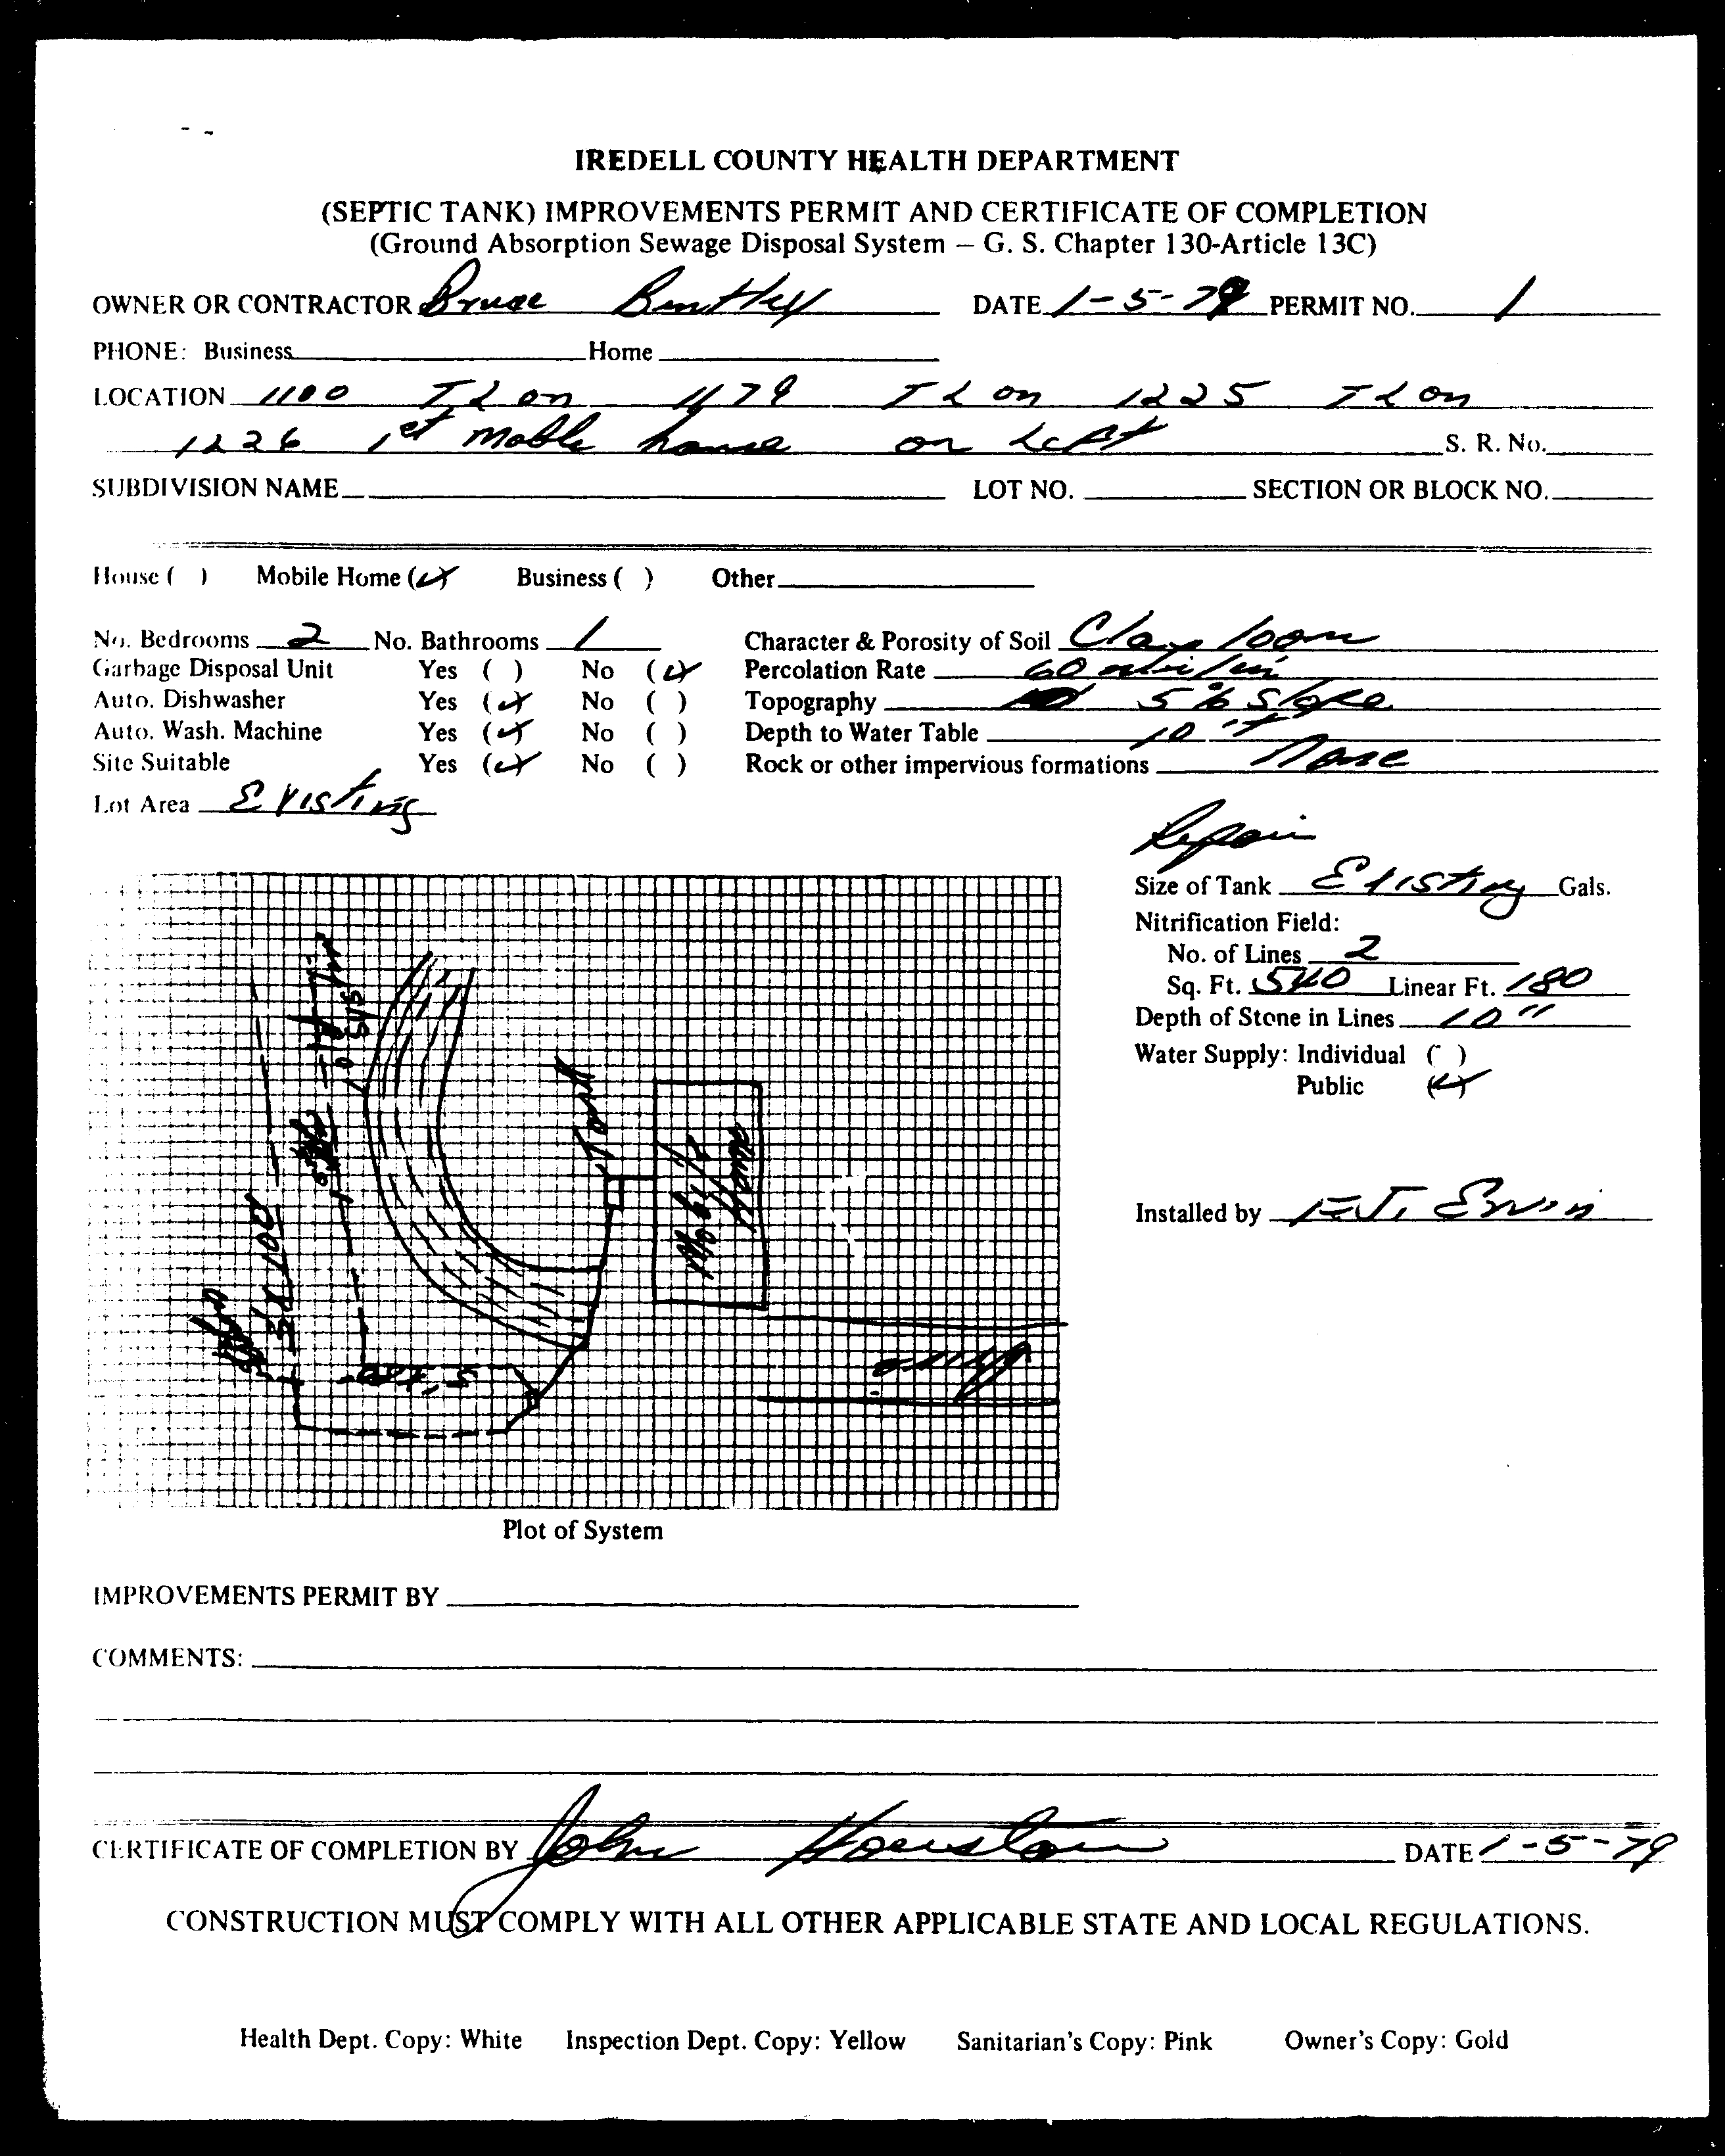 IREDELL COUNTY HEALTH DEPARTMENT
(SEPTIC TANK) IMPROVEMENTS PERMIT AND CERTIFICATE OF COMPLETION
(Ground Absorption Sewage Disposal System — G. S. Chapter 130-Article 13C)
OWNER OR CONTRACTOR Bruce Bentley DATE 1-5-79 PERMIT NO. 1
PHONE: Business Home
LOCATION 1100 TL on 1179 TL on 1225 TL on
1226 1st Moble house on Left S. R. No.
SUBDIVISION NAME LOT NO. SECTION OR BLOCK NO.
House ( ) Mobile Home (✓) Business ( ) Other
No. Bedrooms 2 No. Bathrooms 1 Character & Porosity of Soil Clay loam
Garbage Disposal Unit Yes ( ) No (✓) Percolation Rate 60 min/in
Auto. Dishwasher Yes (✓) No ( ) Topography 5% Slope
Auto. Wash. Machine Yes (✓) No ( ) Depth to Water Table 10 ft
Site Suitable Yes (✓) No ( ) Rock or other impervious formations None
Lot Area Existing
Repair
Size of Tank Existing Gals.
Nitrification Field:
No. of Lines 2
Sq. Ft. 540 Linear Ft. 180
Depth of Stone in Lines 10"
Water Supply: Individual ( )
Public (✓)
Installed by F.J. Ervin
Mobile
Home
Drive
Plot of System
IMPROVEMENTS PERMIT BY
COMMENTS:
CERTIFICATE OF COMPLETION BY John Houston DATE 1-5-79
CONSTRUCTION MUST COMPLY WITH ALL OTHER APPLICABLE STATE AND LOCAL REGULATIONS.
Health Dept. Copy: White Inspection Dept. Copy: Yellow Sanitarian's Copy: Pink Owner's Copy: Gold